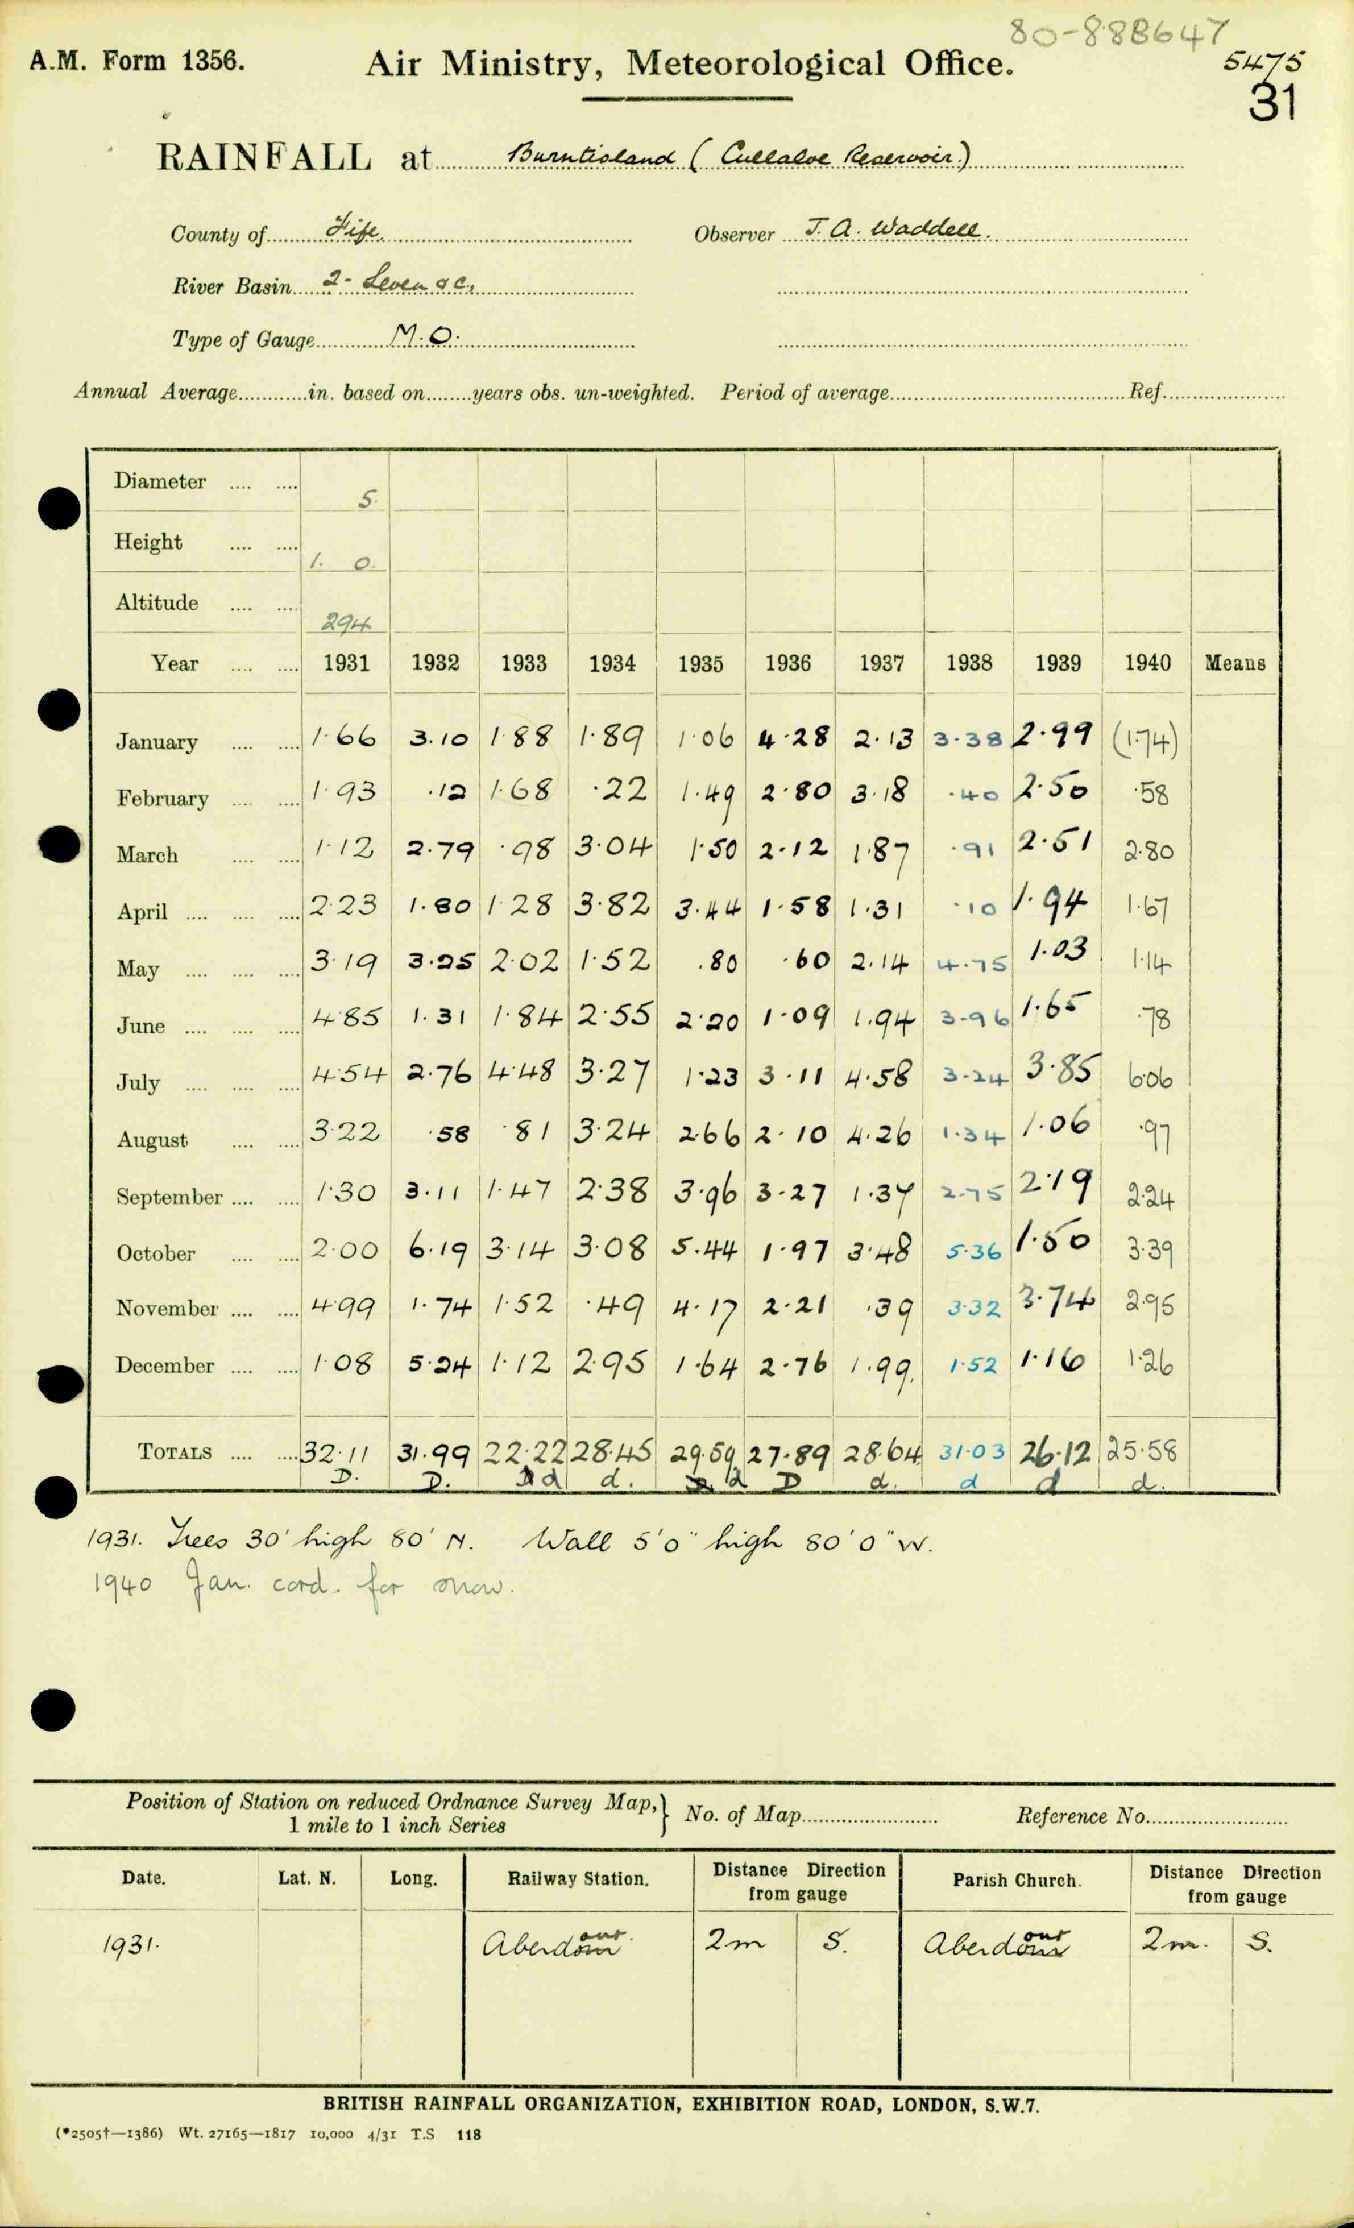 80-888647
A.M. Form 1356. Air Ministry, Meteorological Office. 5475
31
RAINFALL at Burntisland (Cullaloe Reservoir)
County of Fife. Observer J. A. Waddell.
River Basin 2- Leven &c.
Type of Gauge M.O.
Annual Average in. based on years obs. un-weighted. Period of average Ref.
Diameter .... .... 5.
Height .... .... 1. 0.
Altitude .... .... 294
Year .... .... 1931 1932 1933 1934 1935 1936 1937 1938 1939 1940 Means
January .... .... 1.66 3.10 1.88 1.89 1.06 4.28 2.13 3.38 2.99 (1.74)
February .... .... 1.93 .12 1.68 .22 1.49 2.80 3.18 .40 2.50 .58
March .... .... 1.12 2.79 .98 3.04 1.50 2.12 1.87 .91 2.51 2.80
April .... .... .... 2.23 1.80 1.28 3.82 3.44 1.58 1.31 .10 1.94 1.67
May .... .... .... 3.19 3.25 2.02 1.52 .80 .60 2.14 4.75 1.03 1.14
June .... .... .... 4.85 1.31 1.84 2.55 2.20 1.09 1.94 3.96 1.65 .78
July .... .... .... 4.54 2.76 4.48 3.27 1.23 3.11 4.58 3.24 3.85 6.06
August .... .... 3.22 .58 .81 3.24 2.66 2.10 4.26 1.34 1.06 .97
September .... .... 1.30 3.11 1.47 2.38 3.96 3.27 1.37 2.75 2.19 2.24
October .... .... 2.00 6.19 3.14 3.08 5.44 1.97 3.48 5.36 1.50 3.39
November .... .... 4.99 1.74 1.52 .49 4.17 2.21 .39 3.32 3.74 2.95
December .... .... 1.08 5.24 1.12 2.95 1.64 2.76 1.99. 1.52 1.16 1.26
TOTALS .... .... 32.11 31.99 22.22 28.45 29.59 27.89 28.64 31.03 26.12 25.58
D. D. d d. d D d. d d d.
1931. Trees 30' high 80' N. Wall 5'0" high 80'0" W.
1940 Jan. cord. for snow.
Position of Station on reduced Ordnance Survey Map, } No. of Map Reference No.
1 mile to 1 inch Series
Date. Lat. N. Long. Railway Station. Distance Direction from gauge Parish Church. Distance Direction from gauge
1931. Aberdour 2m S. Aberdour 2m. S.
BRITISH RAINFALL ORGANIZATION, EXHIBITION ROAD, LONDON, S.W.7.
(*2505†—1386) Wt. 27165—1817 10,000 4/31 T.S 118